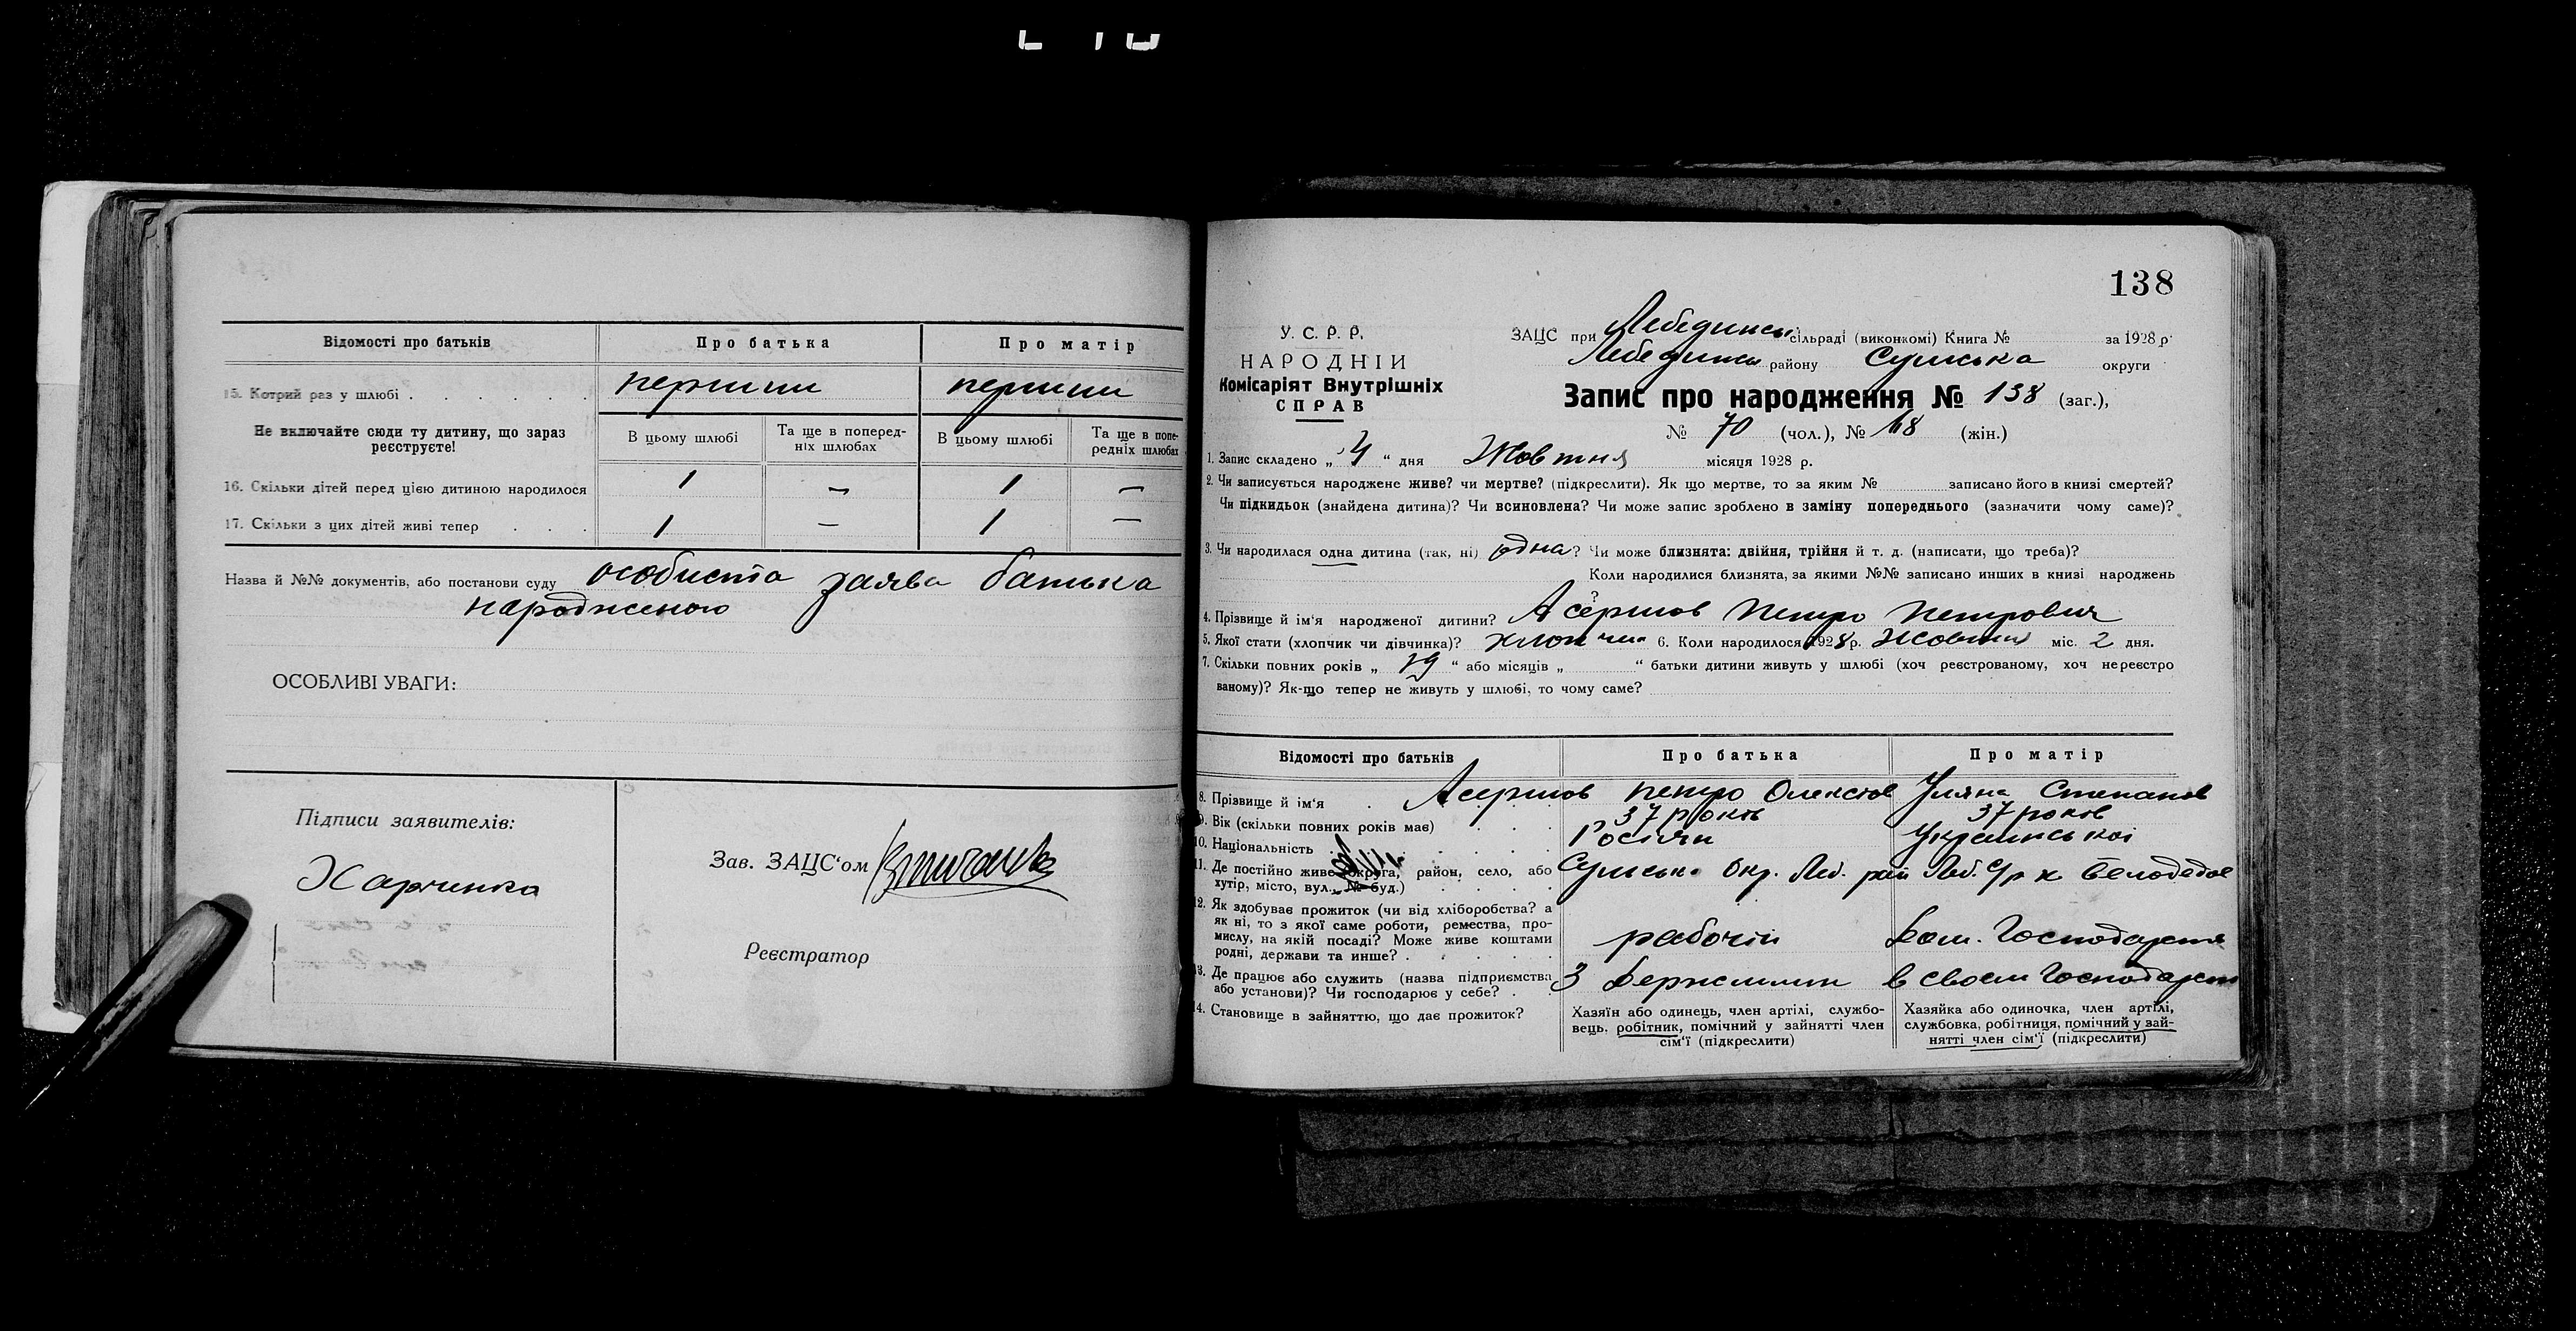 Відомості про батьків Про батька Про матір
15. Котрий раз у шлюбі . . . . . . перший перший
Не включайте сюди ту дитину, що зараз реєструєте!
В цьому шлюбі Та ще в поперед-ніх шлюбах В цьому шлюбі Та ще в попе-редніх шлюбах
16. Скільки дітей перед цією дитиною народилося 1 — 1 —
17. Скільки з цих дітей живі тепер . . . 1 — 1 —
Назва й №№ документів, або постанови суду особиста заява батька
народженого
ОСОБЛИВІ УВАГИ:
Підписи заявителів:
Харченко
Зав. ЗАЦС'ом
Реєстратор
138
У. С. Р. Р.
НАРОДНІЙ
Комісаріят Внутрішніх
СПРАВ
ЗАЦС при Лебединськ сільраді (виконкомі) Книга № за 1928 р.
Лебединськ району Сумська округи
Запис про народження № 138 (заг.),
№ 70 (чол.), № 68 (жін.)
1. Запис складено „ 4 “ дня Жовтня місяця 1928 р.
2. Чи записується народжене живе? чи мертве? (підкреслити). Як що мертве, то за яким № записано його в книзі смертей?
Чи підкидьок (знайдена дитина)? Чи всиновлена? Чи може запис зроблено в заміну попереднього (зазначити чому саме)?
3. Чи народилася одна дитина (так, ні) одна? Чи може близнята: двійня, трійня й т. д. (написати, що треба)?
Коли народилися близнята, за якими №№ записано инших в книзі народжень
?
4. Прізвище й ім'я народженої дитини? Асєршов Петро Петрович
5. Якої стати (хлопчик чи дівчинка)? хлопчик 6. Коли народилося 1928 р. Жовтня міс. 2 дня.
7. Скільки повних років „ 19 “ або місяців „ “ батьки дитини живуть у шлюбі (хоч реєстрованому, хоч нереєстро
ваному)? Як-що тепер не живуть у шлюбі, то чому саме?
Відомості про батьків Про батька Про матір
8. Прізвище й ім'я . Асершов Петро Олексієв Уляна Степанов
9. Вік (скільки повних років має) . . . 37 років 37 років
10. Національність Росіян Української
11. Де постійно живе (округа, район, село, або хутір, місто, вул., № буд.) Сумськ. Окр. Леб. рай Леб. С/р х
12. Як здобуває прожиток (чи від хліборобства? а як ні, то з якої саме роботи, ремества, про-мислу, на якій посаді? Може живе коштами родні, держави та инше? . робочій Дом. Господарств
13. Де працює або служить (назва підприємства або установи)? Чи господарює у себе? . . в своєм Господарст
14. Становище в зайняттю, що дає прожиток?
Хазяїн або одинець, член артілі, службо-вець, робітник, помічний у зайнятті член сім'ї (підкреслити)
Хазяйка або одиночка, член артілі, службовка, робітниця, помічний у зай-нятті член сім'ї (підкреслити)